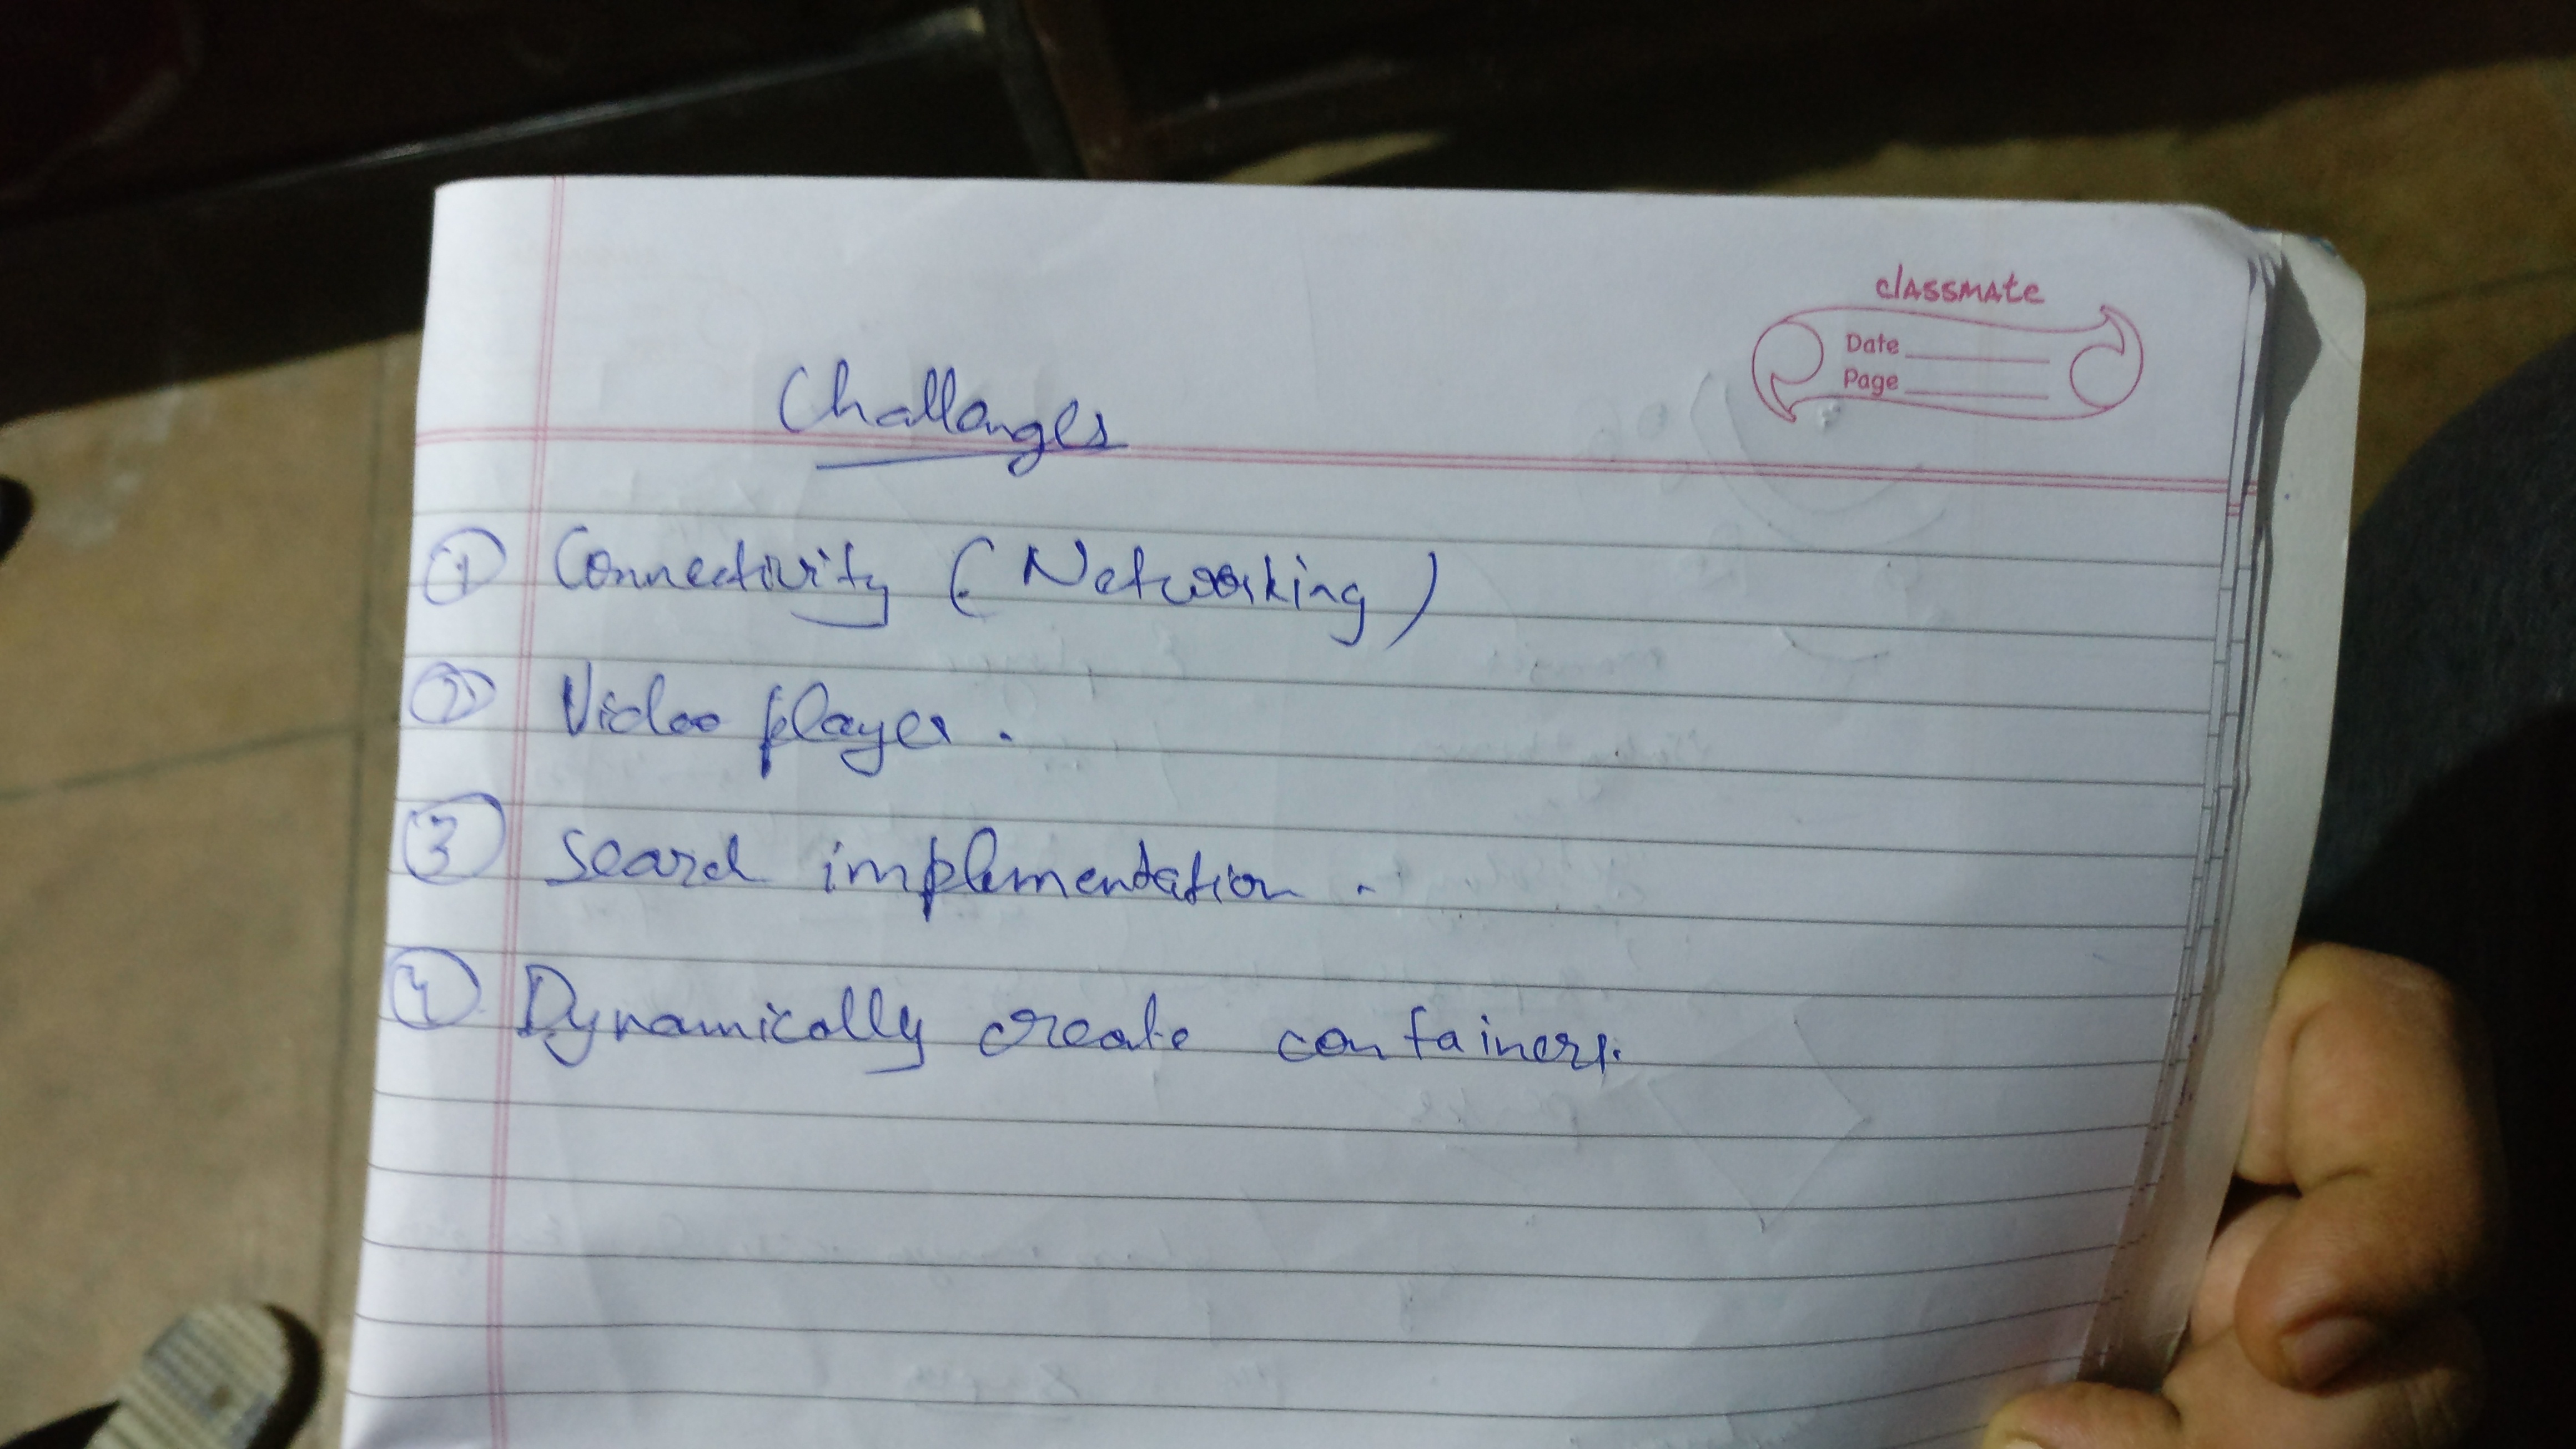 classmate
Date
Page
Challenges
① Connectivity (Networking)
② Video player.
③ Search implementation.
④ Dynamically create containers.